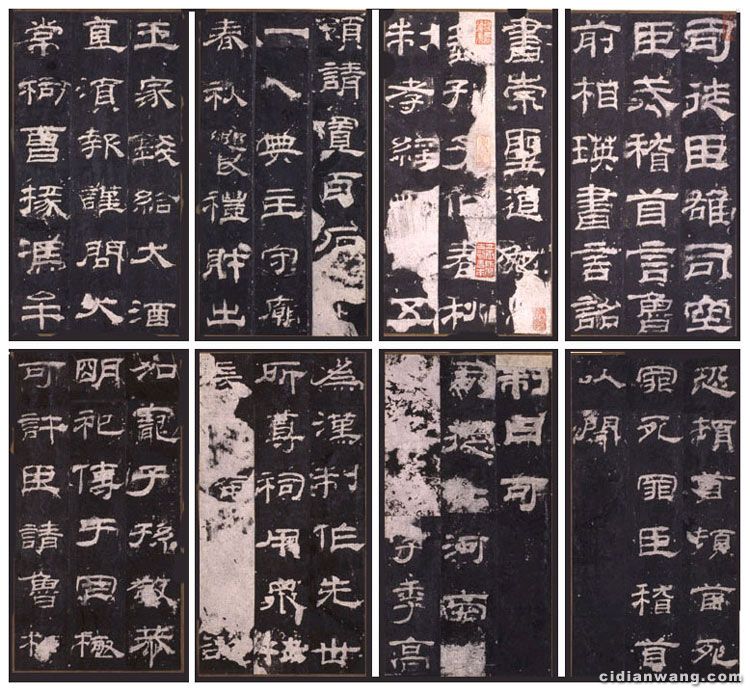 司徒臣雄司空
臣戒稽首言魯
前相瑛書言詔
書崇聖道勉
藝孔子作春秋
制孝經五
頌請置百石
一人典主守廟
春秋饗禮財出
王家錢給大酒
直須報謹問大
常祠曹掾馮牟
恐頓首頓首死
罪死罪臣稽首
以聞
制曰可
司徒公河南
字季高
為漢制作先世
所尊祠用眾牲
長
加寵子孫敬恭
明祀傳于罔極
可許臣請魯相
cidianwang.com